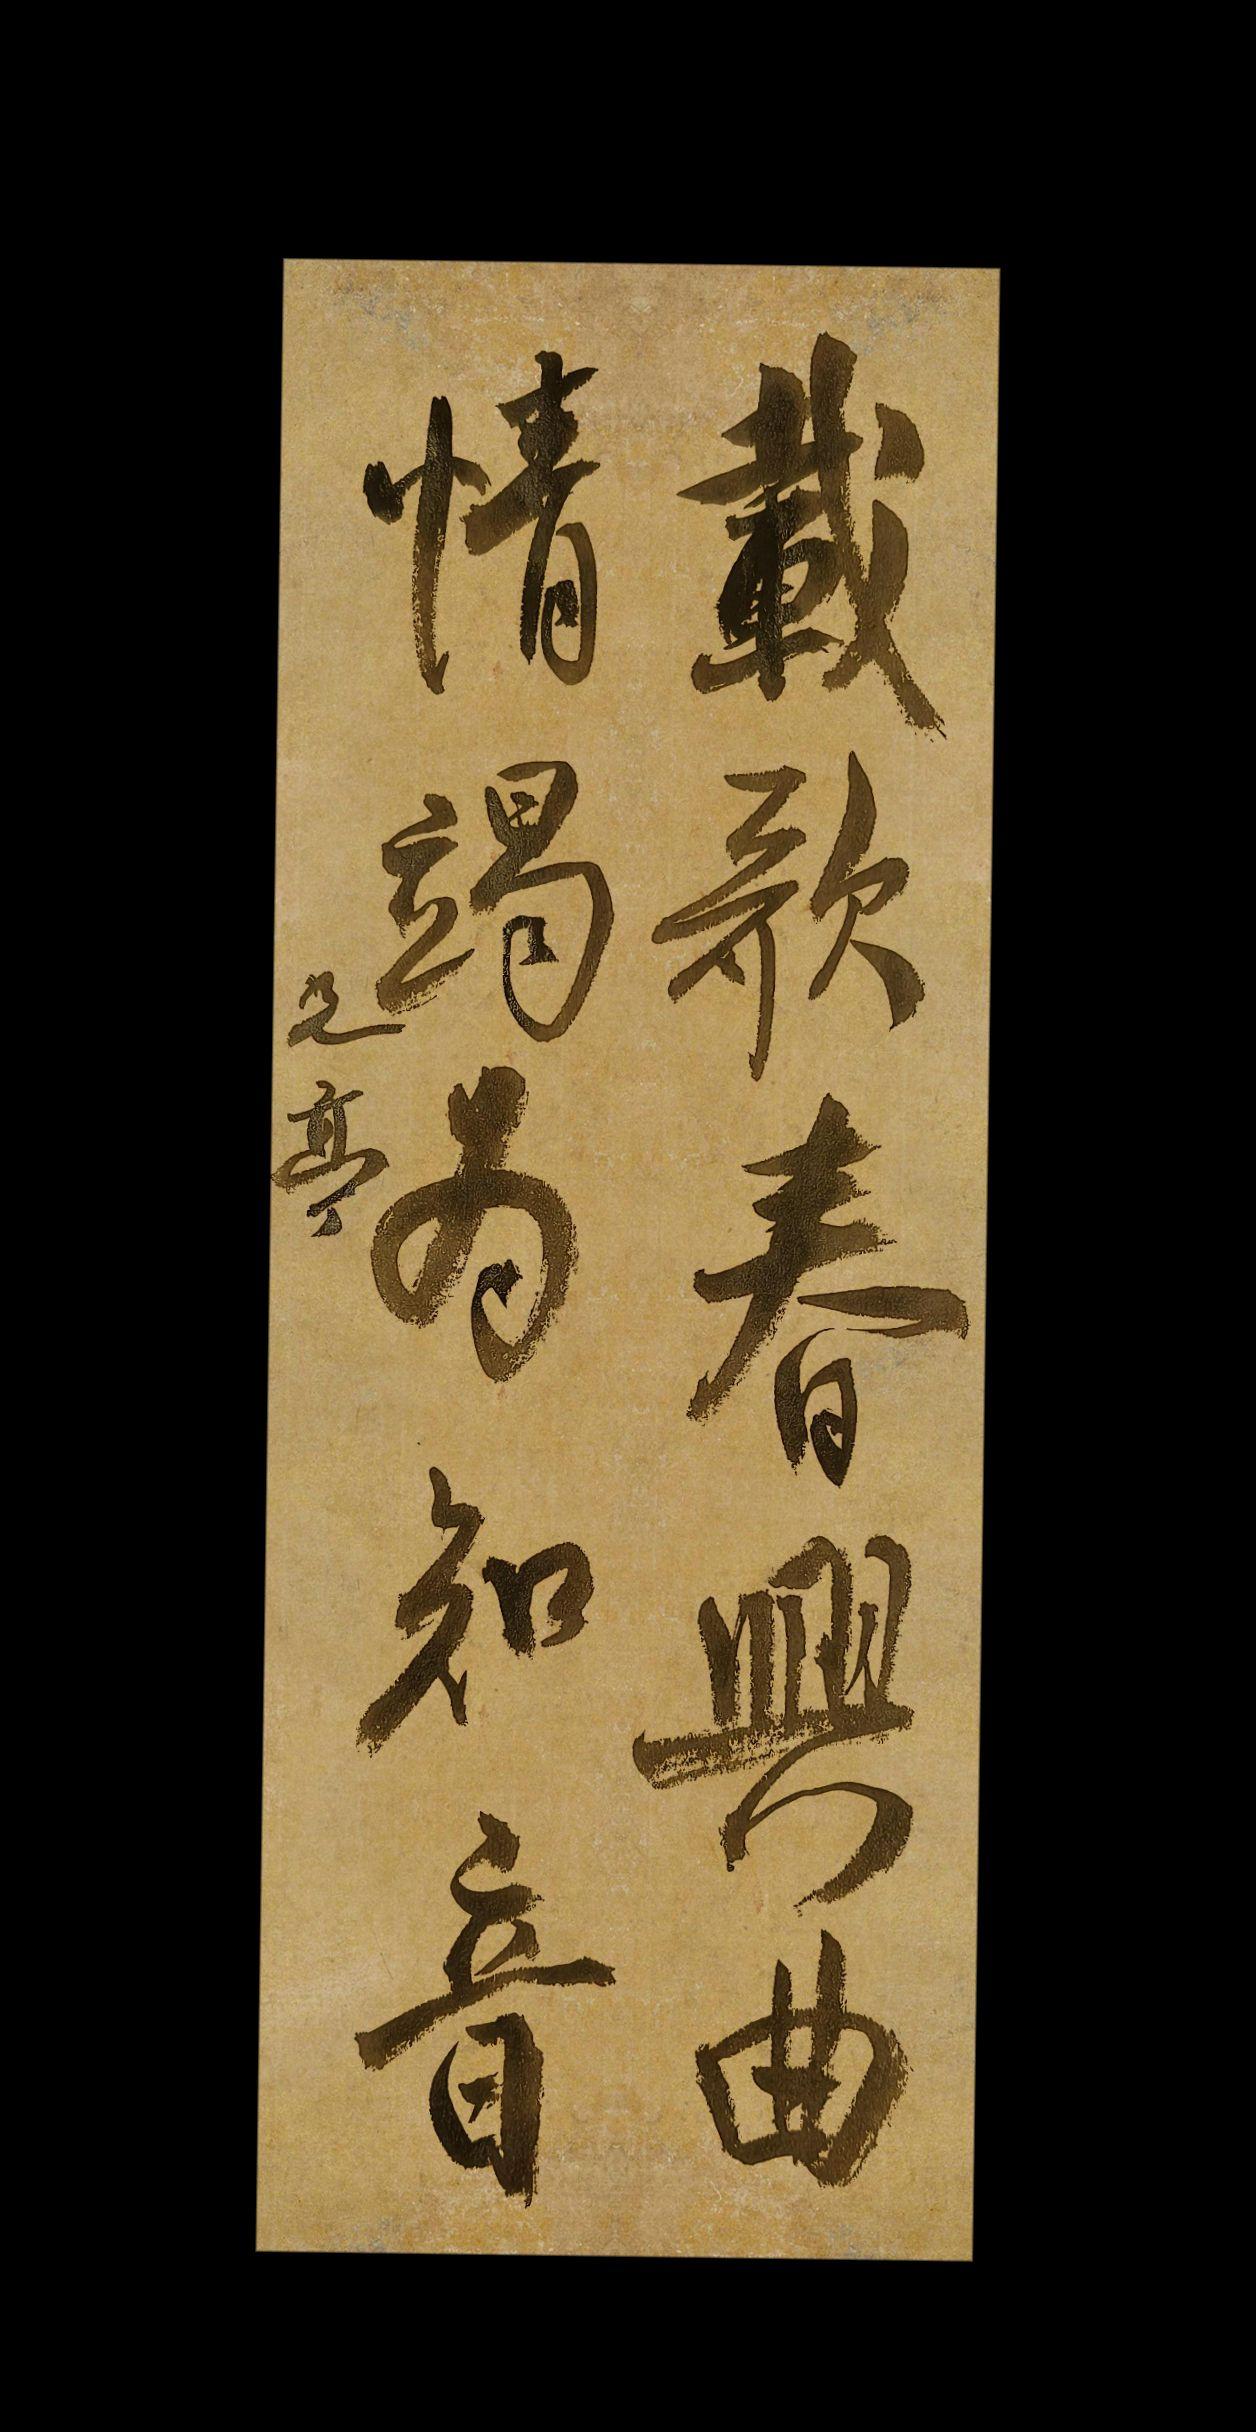 載歌春興曲
情竭為知音